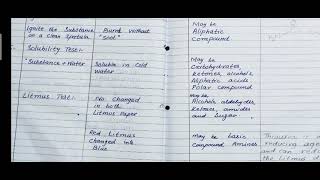 Ignite the Substance
on a Clean Spatula
Burned without
"Soot"
May be
Aliphatic
Compound
Solubility Test:-
Substance + Water
Soluble in Cold
water
May be
Carbohydrates,
Ketones, alcohols,
Aliphatic acids
Polar compound
Litmus Test:-
No Changed
in both
Litmus Paper
May be
Alcohols aldehydes,
Ketones, amides
and Sugar.
Red Litmus
Changed into
Blue
may be basic
Compound Amines
reducing agen
and can redu
the Litmus d